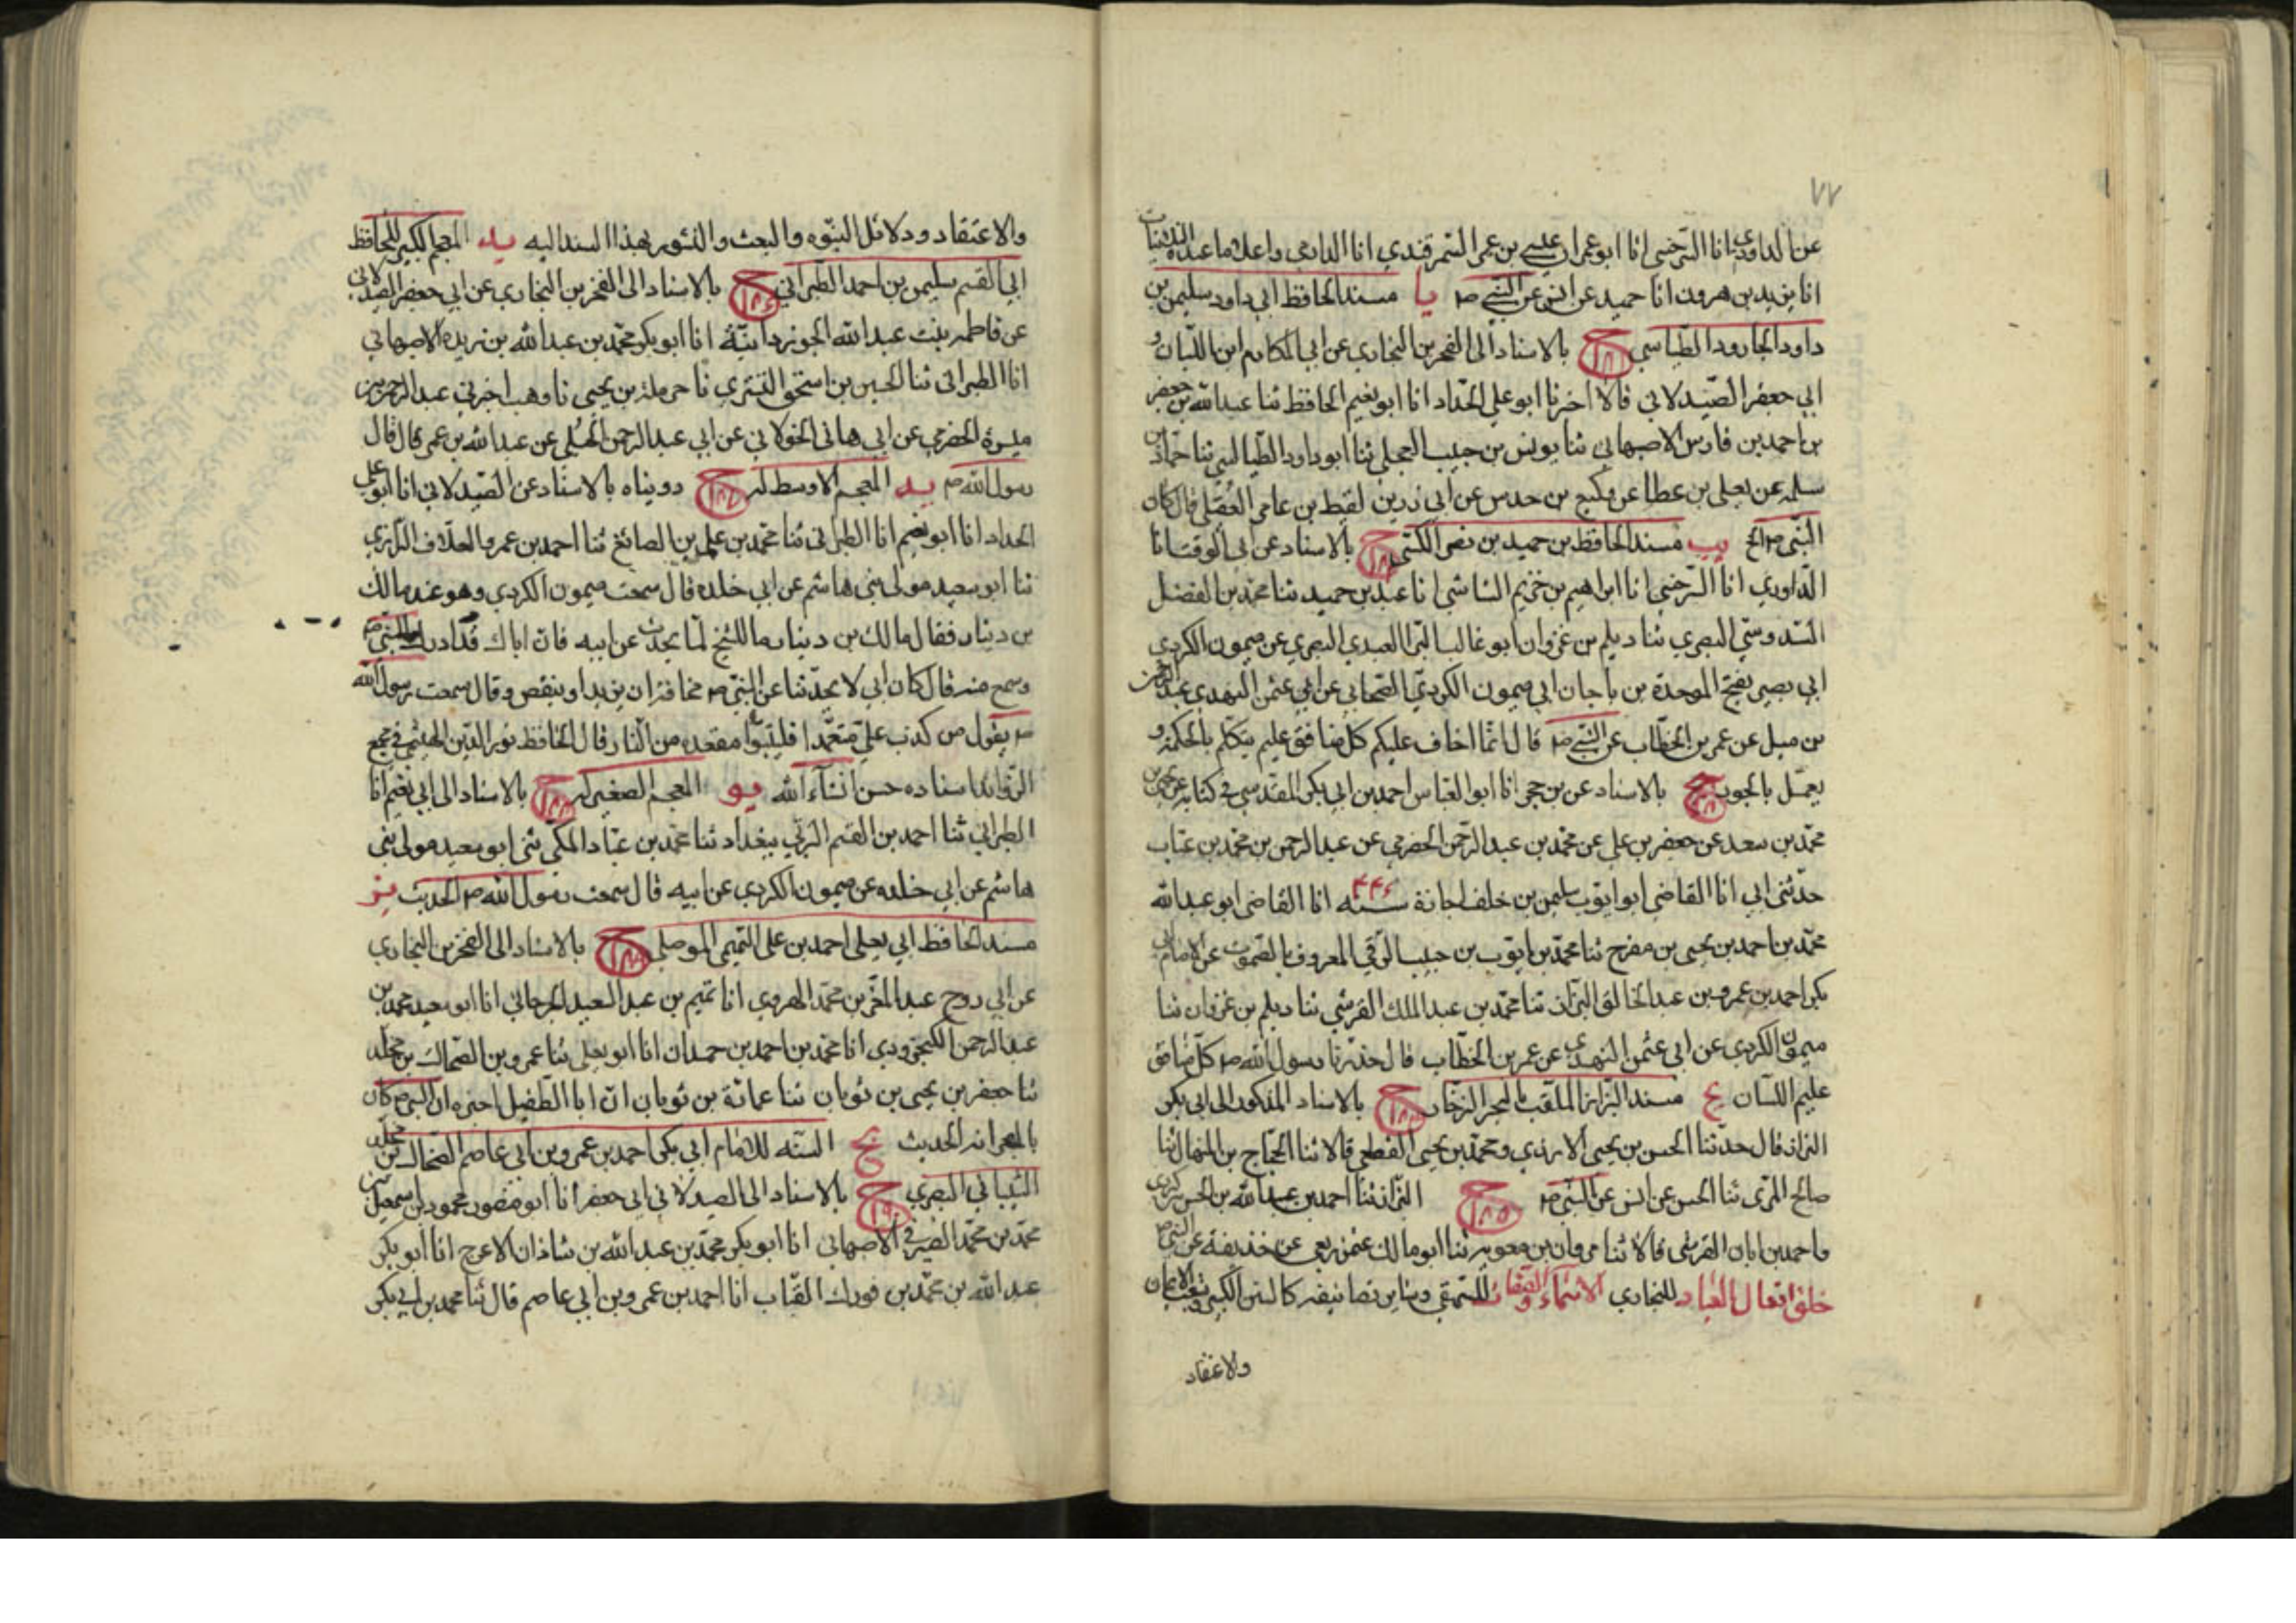 ٧٧
عن الداودي انا السرخسي انا ابو عمران عيسى بن عمر السمرقندي انا الدارمي واعلا ما عنده الثلاثيات
انا يزيد بن هرون انا حميد عن انس عن النبي صم يا مسند الحافظ ابي داود سليمن بن
داود الجارود الطياسي ح بالاسناد الى الفخر بن البخاري عن ابي المكارم ابن اللبان و
ابي جعفر الصيدلاني قالا اخبرنا ابو علي الحداد انا ابو نعيم الحافظ ثنا عبد الله بن جعفر
بن احمد بن فارس الاصبهاني ثنا يونس بن حبيب العجلي ثنا ابو داود الطيالسي ثنا حماد بن
سلمه عن يعلى بن عطا عن وكيع بن حدس عن ابي رزين لقيط بن عامر العقيلي قال كان
النبي صم الخ يب مسند الحافظ بن حميد بن نصر الكشي ح بالاسناد عن ابي الوقت انا
الداوردي انا السرخسي انا ابراهيم بن خزيم الشاشي انا عبد بن حميد ثنا محمد بن الفضل
السدوسي البصري ثنا ديلم بن غزوان ابو غالب البرا العبدي البصري عن ميمون الكردي
ابي بصير بفتح الموحدة بن باجان ابي ميمون الكردي الصحابي عن ابي عثمن النهدي عبد الرحمن
بن مل عن عمر بن الخطاب عن النبي صم قال انما اخاف عليكم كل منافق عليم يتكلم بالحكمة و
يعمل بالجور ح بالاسناد عن بن حجر انا ابو العباس احمد بن ابي بكر المقدسي في كتابه عن يحيى بن
محمد بن سعد عن جعفر بن علي عن محمد بن عبد الرحمن الحضرمي عن عبد الرحمن بن محمد بن عتاب
حدثني ابي انا القاضي ابو ايوب سليمن بن خلف اجازة سنه ٤٤٦ انا القاضي ابو عبد الله
محمد بن احمد بن يحيى بن مفرح ثنا محمد بن ايوب بن حبيب الرقي المعروف بالصموت عن الامام ابي
بكر احمد بن عمرو بن عبد الخالق البزاز ثنا محمد بن عبد الملك القرشي ثنا ديلم بن غزوان ثنا
ميمون الكردي عن ابي عثمن النهدي عن عمر بن الخطاب قال حذرنا رسول الله صم كل منافق
عليم اللسان يج مسند البزاز الملقب بالبحر الزخار ح بالاسناد المذكور الى ابي بكر
البزاز قال حدثنا الحسن بن يحيى الارزي ومحمد بن يحيى القطعي قالا ثنا الحجاج بن المنهال ثنا
صالح المري ثنا الحسن عن انس عن النبي صم ح ١٨٥ البزاز ثنا احمد بن عبد الله بن الحسن بن كردي
واحمد بن ابان القرشي قالا ثنا مروان بن معويه ثنا ابو مالك عن ربعي عن حذيفة عن النبي صم
خلق افعال العباد للبخاري الاسماء والصفات للبيهقي وساير تصانيفه كالسنن الكبرى وشعب الايمان
والاعتقاد
والاعتقاد ودلائل النبوه والبعث والنشور بهذا السند اليه يد المعجم الكبير للحافظ
ابي القسم سليمن بن احمد الطبراني ح ١٨٦ بالاسناد الى الفخر بن البخاري عن ابي جعفر الصيدلاني
عن فاطمه بنت عبد الله الجوزدانية انا ابو بكر محمد بن عبد الله بن ريده الاصبهاني
انا الطبراني ثنا الحسين بن اسحق التستري نا حرملة بن يحيى نا وهب اخبرني عبد الرحمن بن
ميسرة الحضرمي عن ابي هاني الخولاني عن ابي عبد الرحمن الحبلي عن عبد الله بن عمر قال قال
رسول الله صم يد المعجم الاوسط له ح ١٨٧ رويناه بالاسناد عن الصيدلاني انا ابو علي
الحداد انا ابو نعيم انا الطبراني ثنا محمد بن علي بن الصائغ ثنا احمد بن عمرو العلاف الرازي
ثنا ابو سعيد مولى بني هاشم عن ابي خلده قال سمعت ميمون الكردي وهو عند مالك
بن دينار فقال مالك بن دينار ما للشيخ لما يحدث عن ابيه فان اباك قد ادرك النبي صم
وسمع منه قال كان ابي لا يحدثنا عن النبي صم مخافة ان يزيد او ينقص وقال سمعت رسول الله
صم يقول من كذب علي متعمدا فليتبوا مقعده من النار قال الحافظ نور الدين الهيثمي في مجمع
الزوائد اسناده حسن انشاء الله يو المعجم الصغير له ح ١٨٨ بالاسناد الى ابي نعيم انا
الطبراني ثنا احمد بن القسم البرتي ببغداد ثنا محمد بن عباد المكي ثني ابو سعيد مولى بني
هاشم عن ابي خلده عن ميمون الكردي عن ابيه قال سمعت رسول الله صم الحديث يز
مسند الحافظ ابي يعلى احمد بن علي التميمي الموصلي ح ١٨٩ بالاسناد الى الفخر بن البخاري
عن ابي روح عبد المعز بن محمد الهروي انا تميم بن عبد السعيد الجرجاني انا ابو سعيد محمد بن
عبد الرحمن الكنجرودي انا محمد بن احمد بن حمدان انا ابو يعلى ثنا عمرو بن الضحاك بن مخلد
ثنا جعفر بن يحيى بن ثوبان ثنا عمارة بن ثوبان ان ابا الطفيل اخبره ان النبي صم كان
بالجعرانه الحديث يح السنه للامام ابي بكر احمد بن عمرو بن ابي عاصم الضحاك بن مخلد
الشيباني البصري ح ١٩٠ بالاسناد الى الصيدلاني ابي جعفر انا ابو منصور محمود بن اسمعيل بن
محمد بن محمد الصيرفي الاصبهاني انا ابو بكر محمد بن عبد الله بن شاذان الاعرج انا ابو بكر
عبد الله بن محمد بن فورك القباب انا احمد بن عمرو بن ابي عاصم قال ثنا محمد بن ابي بكر